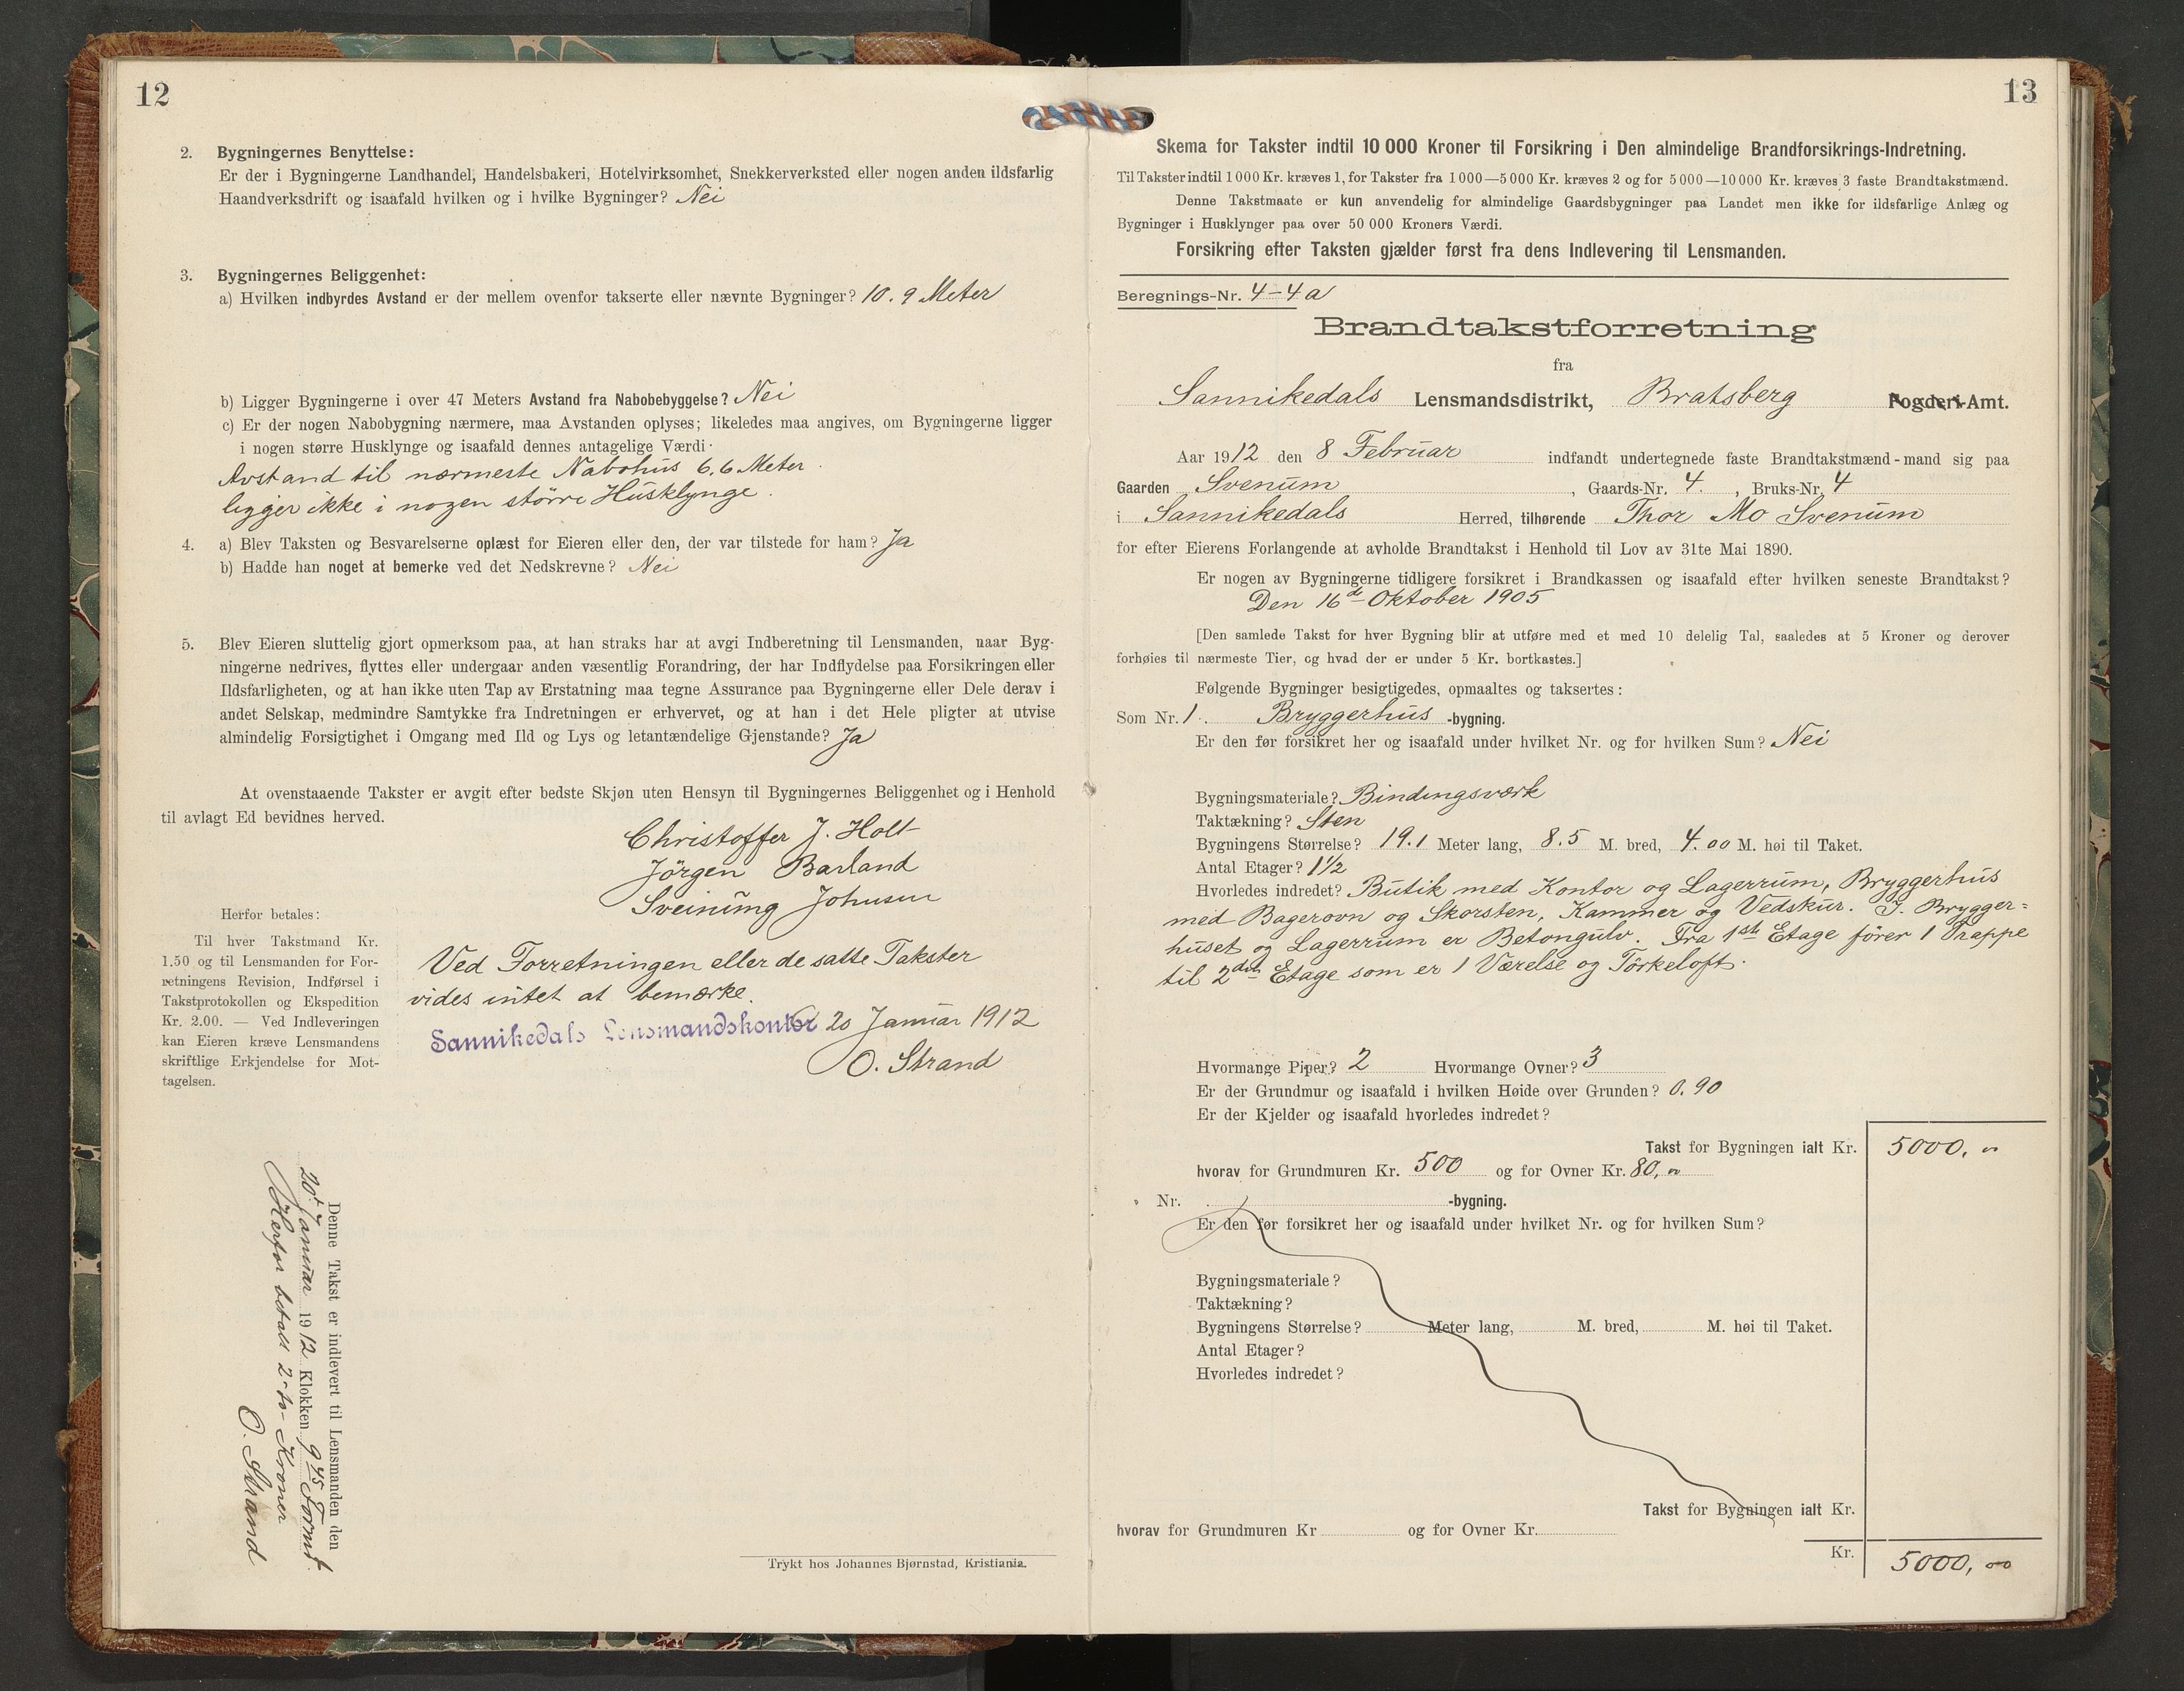 12
2. Bygningernes Benyttelse:
Er der i Bygningerne Landhandel, Handelsbakeri, Hotelvirksomhet, Snekkerverksted eller nogen anden ildsfarlig
Haandverksdrift og isaafald hvilken og i hvilke Bygninger? Nei
3. Bygningernes Beliggenhet:
a) Hvilken indbyrdes Avstand er der mellem ovenfor takserte eller nævnte Bygninger? 10.9 Meter
b) Ligger Bygningerne i over 47 Meters Avstand fra Nabobebyggelse? Nei
c) Er der nogen Nabobygning nærmere, maa Avstanden oplyses; likeledes maa angives, om Bygningerne ligger
i nogen større Husklynge og isaafald dennes antagelige Værdi.
Avstand til nærmeste Nabohus 6.6 Meter.
ligger ikke i nogen större Husklynge.
4. a) Blev Taksten og Besvarelserne oplæst for Eieren eller den, der var tilstede for ham? Ja
b) Hadde han noget at bemerke ved det Nedskrevne? Nei
5. Blev Eieren sluttelig gjort opmerksom paa, at han straks har at avgi Indberetning til Lensmanden, naar Byg-
ningerne nedrives, flyttes eller undergaar anden væsentlig Forandring, der har Indflydelse paa Forsikringen eller
Ildsfarligheten, og at han ikke uten Tap av Erstatning maa tegne Assurance paa Bygningerne eller Dele derav i
andet Selskap, medmindre Samtykke fra Indretningen er erhvervet, og at han i det Hele pligter at utvise
almindelig Forsigtighet i Omgang med Ild og Lys og letantændelige Gjenstande? Ja
At ovenstaaende Takster er avgit efter bedste Skjøn uten Hensyn til Bygningernes Beliggenhet og i Henhold
til avlagt Ed bevidnes herved.
Christoffer J. Holt
Jörgen Barland
Sveinung Johnsen
Herfor betales:
Til hver Takstmand Kr.
1.50 og til Lensmanden for For-
retningens Revision, Indførsel i
Takstprotokollen og Ekspedition
Kr. 2.00. — Ved Indleveringen
kan Eieren kræve Lensmandens
skriftlige Erkjendelse for Mot-
tagelsen.
Ved Forretningen eller de satte Takster
vides intet at bemærke.
Sannikedals Lensmandskontor 20 Januar 1912
O. Strand
Denne Takst er indlevert til Lensmanden den
20de Januar 1912 Klokken 9 45 Formt
Herfor betalt 2-to- Kroner
O. Strand
Trykt hos Johannes Bjørnstad, Kristiania.
13
Skema for Takster indtil 10 000 Kroner til Forsikring i Den almindelige Brandforsikrings-Indretning.
Til Takster indtil 1000 Kr. kræves 1, for Takster fra 1000—5000 Kr. kræves 2 og for 5000—10000 Kr. kræves 3 faste Brandtakstmænd.
Denne Takstmaate er kun anvendelig for almindelige Gaardsbygninger paa Landet men ikke for ildsfarlige Anlæg og
Bygninger i Husklynger paa over 50 000 Kroners Værdi.
Forsikring efter Taksten gjælder først fra dens Indlevering til Lensmanden.
Beregnings-Nr. 4-4a
Brandtakstforretning
fra
Sannikedals Lensmandsdistrikt, Bratsberg Fogderi-Amt.
Aar 1912 den 8 Februar indfandt undertegnede faste Brandtakstmænd-mand sig paa
Gaarden Svenum, Gaards-Nr. 4., Bruks-Nr. 4
i Sannikedals Herred, tilhørende Thor Mo Svenum
for efter Eierens Forlangende at avholde Brandtakst i Henhold til Lov av 31te Mai 1890.
Er nogen av Bygningerne tidligere forsikret i Brandkassen og isaafald efter hvilken seneste Brandtakst?
Den 16de Oktober 1905
[Den samlede Takst for hver Bygning blir at utføre med et med 10 delelig Tal, saaledes at 5 Kroner og derover
forhøies til nærmeste Tier, og hvad der er under 5 Kr. bortkastes.]
Følgende Bygninger besigtigedes, opmaaltes og taksertes:
Som Nr. 1. Bryggerhus -bygning.
Er den før forsikret her og isaafald under hvilket Nr. og for hvilken Sum? Nei
Bygningsmateriale? Bindingsværk
Taktækning? Sten
Bygningens Størrelse? 19.1 Meter lang, 8.5 M. bred, 4.00 M. høi til Taket.
Antal Etager? 1½
Hvorledes indredet? Butik med Kontor og Lagerrum, Bryggerhus
med Bagerovn og Skorsten, Kammer og Vedskur. I. Brygger=
huset og Lagerrum er Betongulv. Fra 1ste Etage förer 1 Trappe
til 2den Etage som er 1 Værelse og Törkeloft.
Hvormange Piper? 2 Hvormange Ovner? 3
Er der Grundmur og isaafald i hvilken Høide over Grunden? 0.90
Er der Kjelder og isaafald hvorledes indredet?
Takst for Bygningen ialt Kr. 5000,"
hvorav for Grundmuren Kr. 500 og for Ovner Kr. 80,"
Nr. -bygning.
Er den før forsikret her og isaafald under hvilket Nr. og for hvilken Sum?
Bygningsmateriale?
Taktækning?
Bygningens Størrelse? Meter lang, M. bred, M. høi til Taket.
Antal Etager?
Hvorledes indredet?
Takst for Bygningen ialt Kr.
hvorav for Grundmuren Kr. og for Ovner Kr.
Kr. 5000,00